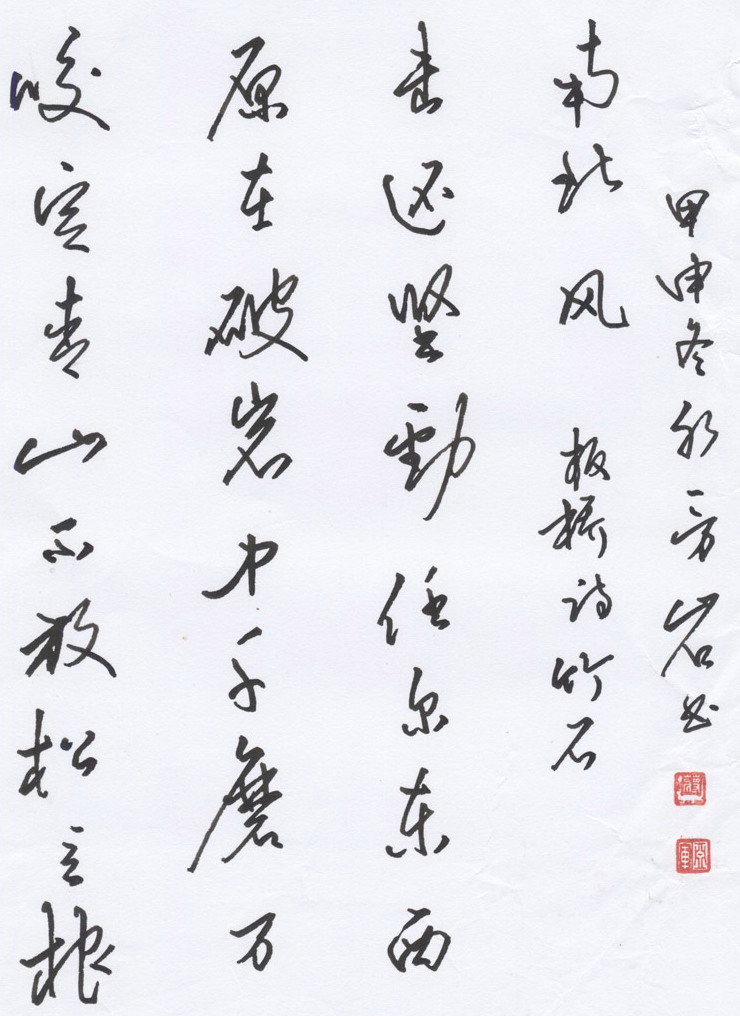 咬定青山不放松立根
原在破岩中千磨万
击还坚劲任尔东西
南北风 板桥诗竹石
甲申冬 岩书